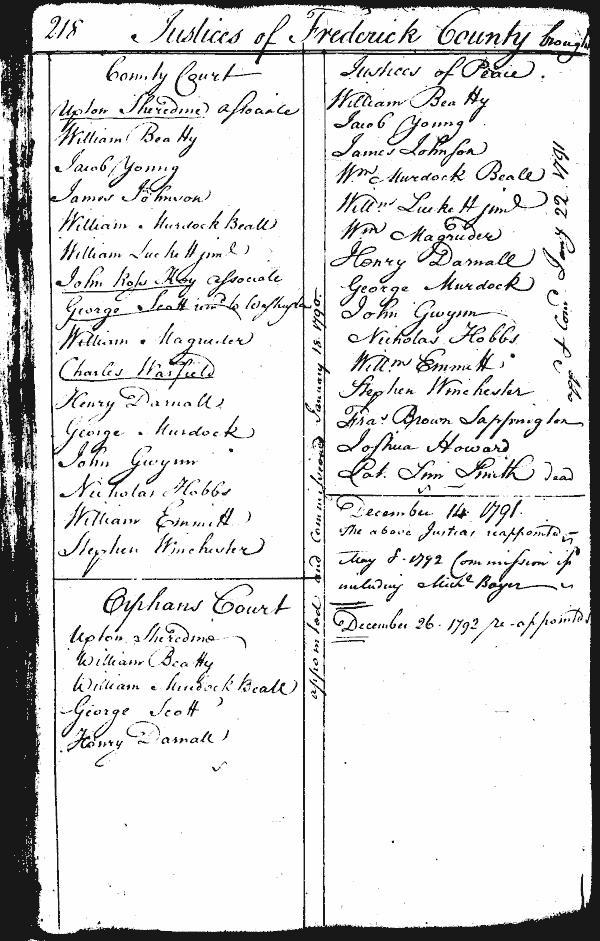 218 Justices of Frederick County brough
County Court
Upton Sheredine associate
William Beatty
Jacob Young
James Johnson
William Murdock Beall
William Luckett junr
John Ross Key associate
George Scott to Washington
William Magruder
Charles Warfield
Henry Darnall
George Murdock
John Gwynn
Nicholas Hobbs
William Emmitt
Stephen Winchester
Orphans Court
Upton Sheredine
William Beatty
William Murdock Beall
George Scott
Henry Darnall
appointed and commissioned January 18. 1790.
Justices of Peace.
William Beatty
Jacob Young
James Johnson
Wm Murdock Beall
Willm Luckett junr
Wm Magruder
Henry Darnall
George Murdock
John Gwynn
Nicholas Hobbs
Willm Emmitt
Stephen Winchester
Fras Brown Sappington
Joshua Howard
Pat. Sim Smith dead
app & Com Jany 22 1791
December 14 1791.
the above Justices reappointed
May 8. 1792 Commission iss
including Michl Boyer
December 26. 1792 re-appointed